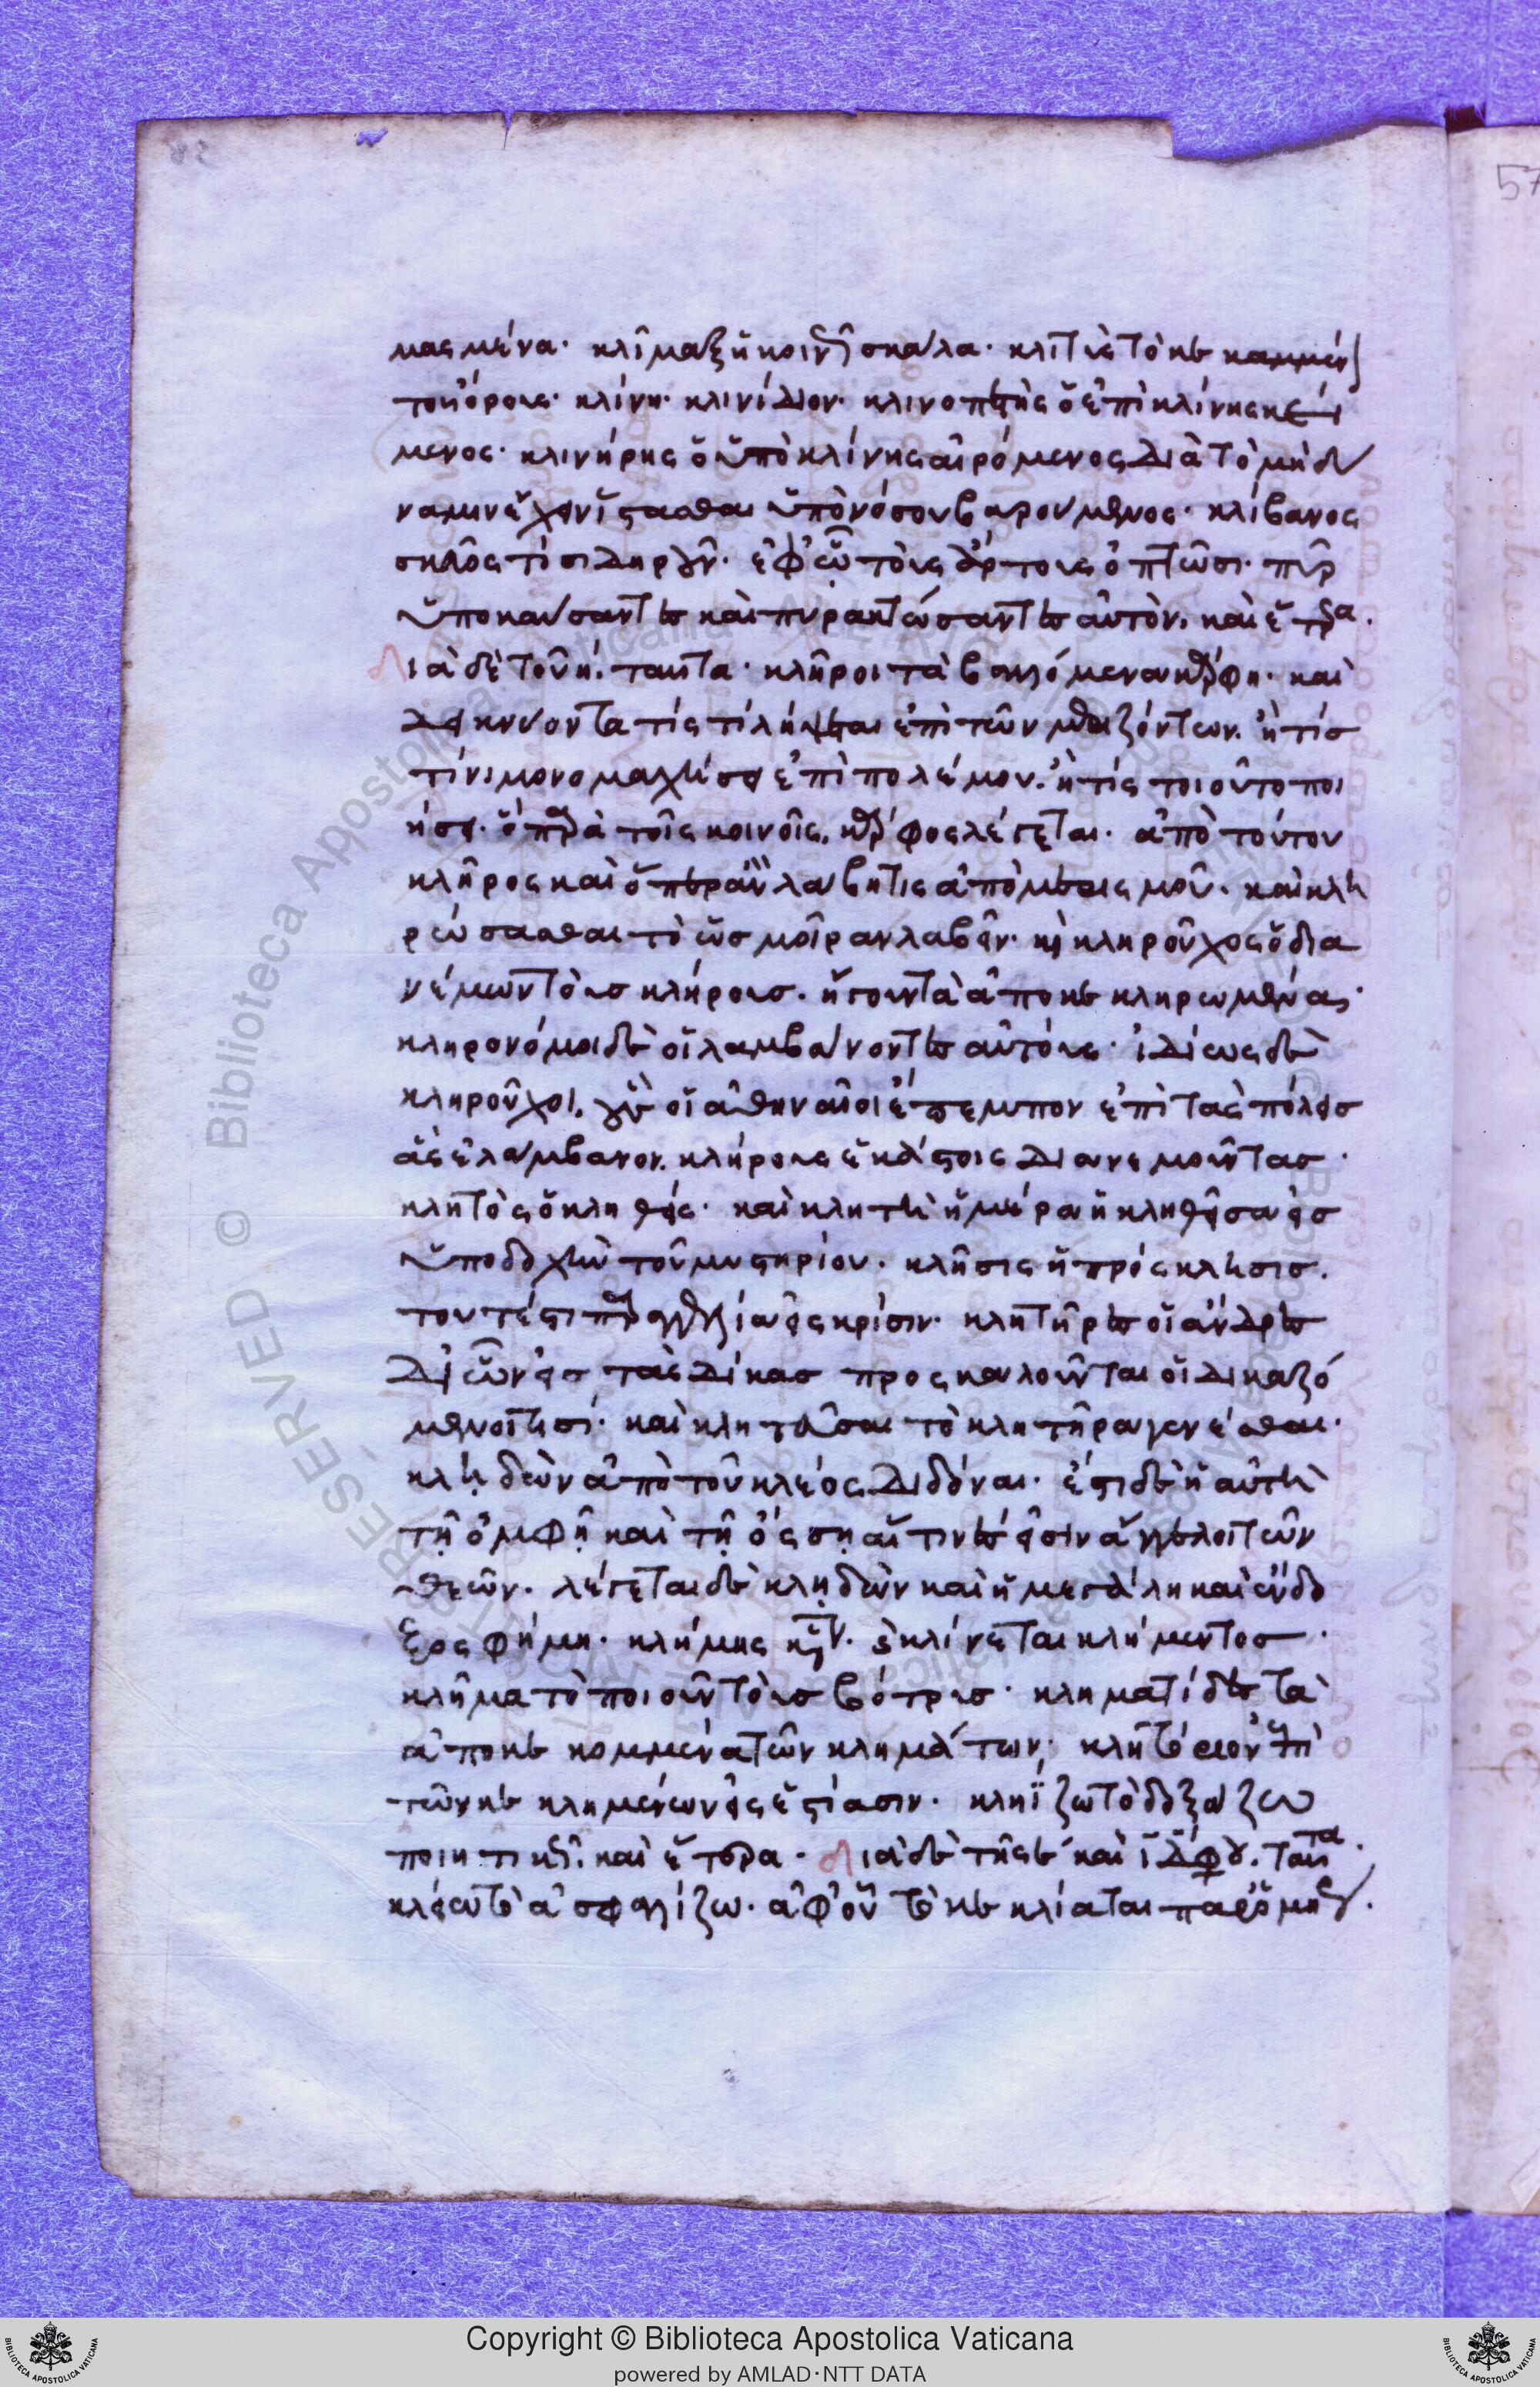 μασμένα· κλίμαξ ἡ κοινῆ σκάλα· κλιτὺς τὸ κε καμμέν
τοῦ ὄρους· κλίνη· κλινίδιον· κλινοπετὴς ὁ ἐπὶ κλίνης κεί
μενος· κλινήρης ὁ ὑπὸ κλίνης αἰρόμενος διὰ τὸ μὴ δύ
ναμιν ἔχειν ἵστασθαι ὑπὸ νόσου βαρουμενος· κλίβανος
σκεῦος τὶ σιδηροῦν· ἐφ' ᾧ τοὺς ἄρτους ὀπτῶσι· πῦρ
ὑποκαύσαντες καὶ πυρακτώσαντες αὐτόν· καὶ ἕτερα·
διὰ δὲ τοῦ η· ταῦτα· κλῆροι τὰ βαλλόμενα κέρφη· καὶ
δεικνύοντα τίς τί λήψεται ἐπὶ τῶν μεριζόντων· ἢ τίσ
τίνι μονομαχήσει ἐπὶ πολέμου· ἢ τίς τοιοῦτο ποι
ήσει· ὃ παρὰ τοῖς κοινοῖς· κέρφος λέγεται· ἀπὸ τούτου
κλῆρος καὶ ὅπερ ἂν λάβῃ τις ἀπὸ μερισμοῦ· καὶ κλη
ρώσασθαι τὸ ὡσ μοῖραν λαβεῖν· καὶ κληροῦχος ὁ δια
νέμων τοὺσ κλήρουσ· ἤγουν τὰ ἀποκεκληρωμένα·
κληρονόμοι δὲ οἱ λαμβάνοντες αὐτούς· ἰδίως δὲ
κληροῦχοι· οὓς οἱ ἀθηναῖοι ἔπεμπον ἐπὶ τὰς πόλεισ
ἃς ἐλάμβανον· κλήρους ἑκάστοις διανεμοῦντασ·
κλητὸς ὁ κληθείς· καὶ κλητὴ ἡμέρα ἡ κληθεῖσα εἰσ
ὑποδοχὴν τοῦ μυστηρίου· κλῆσις ἡ πρόσκλησισ·
τουτέστι παραγγελία εἰς κρίσιν· κλητῆρες οἱ ἄνδρες
δι' ὧν εἰσ τὰς δίκασ προσκαλοῦνται οἱ δικαζό
μενοι τισί· καὶ κλητεῦσαι τὸ κλητῆρα γενέσθαι·
κληδὼν ἀπὸ τοῦ κλέος διδόναι· ἔστι δὲ ἡ αὐτὴ
τῇ ὀμφῇ καὶ τῇ ὄσσῃ αἵ τινες εἰσὶν ἄγγελοι τῶν
θεῶν· λέγεται δὲ κληδὼν καὶ ἡ μεγάλη καὶ ἔνδο
ξος φήμη· κλήμης κύριον· ὃ κλίνεται κλήμεντοσ·
κλῆμα τὸ ποιοῦν τοὺσ βότρυσ· κληματίδες τὰ
ἀποκεκομμένα τῶν κλημάτων· κλητέον ἐπὶ
τῶν κεκλημένων εἰς ἑστίασιν· κληΐζω τὸ δοξάζω
ποιητική· καὶ ἕτερα· διὰ δὲ τῆς ει καὶ ι διφθόγγου· ταῦτα·
κλείω τὸ ἀσφαλίζω· ἀφ' οὗ τὸ κεκλίαται παρ' ὁμήρῳ·